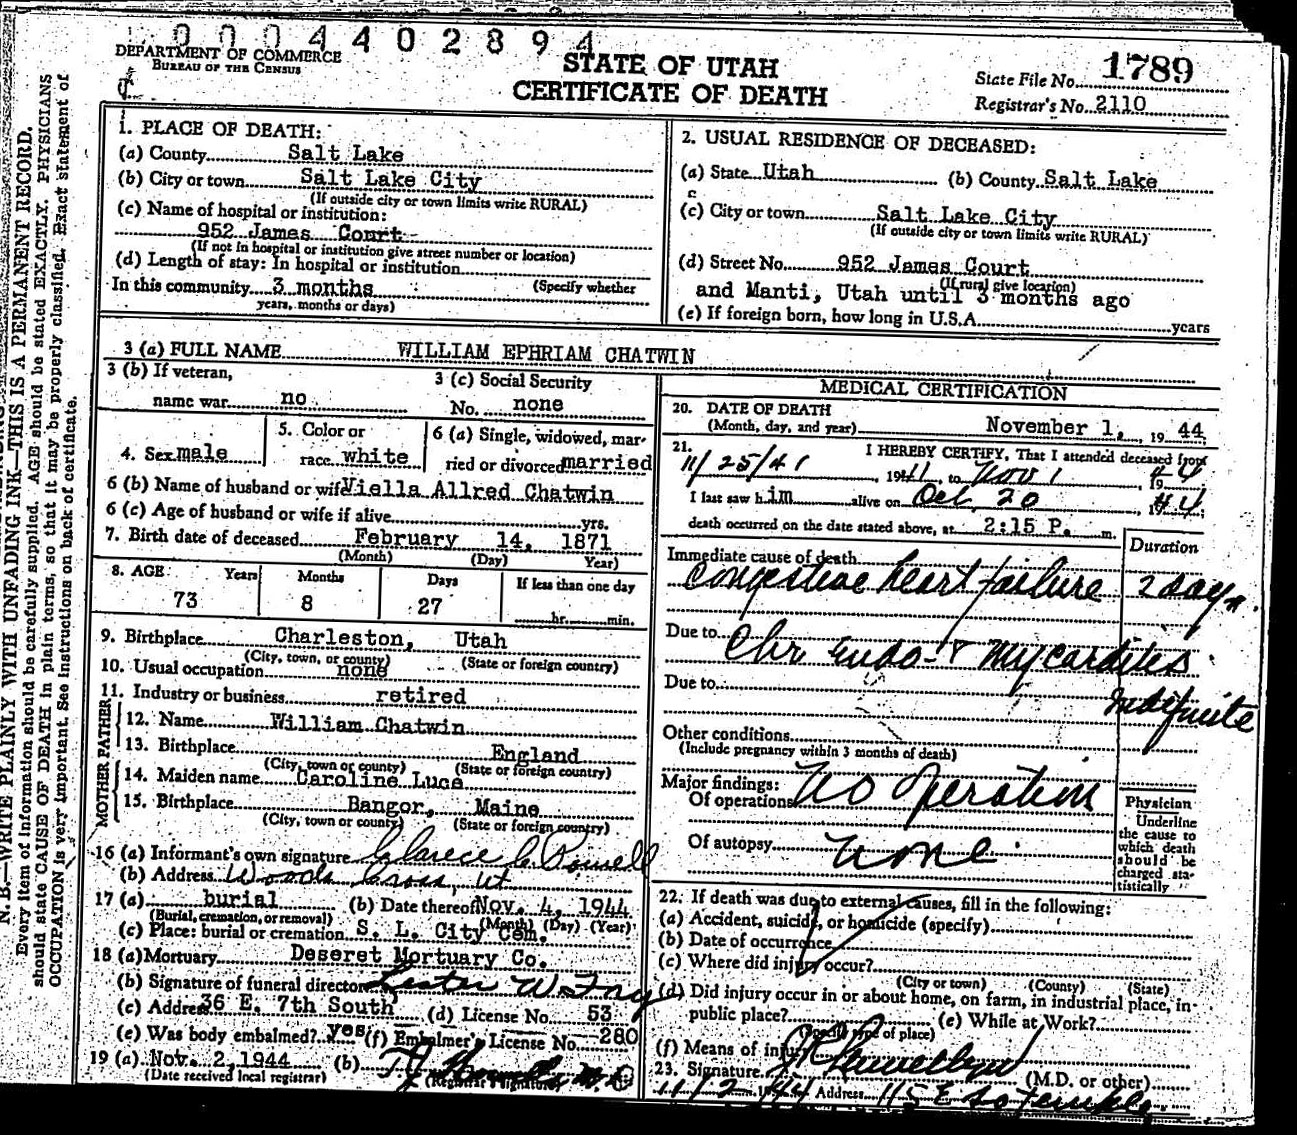 00044402894
DEPARTMENT OF COMMERCE
BUREAU OF THE CENSUS
STATE OF UTAH
CERTIFICATE OF DEATH
State File No. 1789
Registrar's No. 2110
N. B.—WRITE PLAINLY WITH UNFADING INK—THIS IS A PERMANENT RECORD.
Every item of information should be carefully supplied. AGE should be stated EXACTLY. PHYSICIANS
should state CAUSE OF DEATH in plain terms, so that it may be properly classified. Exact statement of
OCCUPATION is very important. See instructions on back of certificate.
1. PLACE OF DEATH:
(a) County Salt Lake
(b) City or town Salt Lake City
(If outside city or town limits write RURAL)
(c) Name of hospital or institution:
952 James Court
(If not in hospital or institution give street number or location)
(d) Length of stay: In hospital or institution
In this community 3 months (Specify whether
years, months or days)
2. USUAL RESIDENCE OF DECEASED:
(a) State Utah (b) County Salt Lake
(c) City or town Salt Lake City
(If outside city or town limits write RURAL)
(d) Street No. 952 James Court
(If rural give location)
and Manti, Utah until 3 months ago
(e) If foreign born, how long in U.S.A. years
3 (a) FULL NAME WILLIAM EPHRIAM CHATWIN
3 (b) If veteran,
name war no
3 (c) Social Security
No. none
4. Sex male
5. Color or
race white
6 (a) Single, widowed, mar-
ried or divorced married
6 (b) Name of husband or wife Viella Allred Chatwin
6 (c) Age of husband or wife if alive yrs.
7. Birth date of deceased February 14, 1871
(Month) (Day) Year)
8. AGE Years Months Days If less than one day
73 8 27 hr. min.
9. Birthplace Charleston, Utah
(City, town, or county) (State or foreign country)
10. Usual occupation none
11. Industry or business retired
FATHER
12. Name William Chatwin
13. Birthplace England
(City, town or county) (State or foreign country)
MOTHER
14. Maiden name Caroline Luce
15. Birthplace Bangor, Maine
(City, town or county) (State or foreign country)
16 (a) Informant's own signature C. Powell
(b) Address Woods Cross, Ut
17 (a) burial (b) Date thereof Nov. 4, 1944
(Burial, cremation, or removal) (Month) (Day) (Year)
(c) Place: burial or cremation S. L. City Cem.
18 (a) Mortuary Deseret Mortuary Co.
(b) Signature of funeral director Lester W.
(c) Address 36 E. 7th South (d) License No. 53
(e) Was body embalmed? yes (f) Embalmer's License No. 280
19 (a) Nov. 2, 1944 (b)
(Date received local registrar) (Registrar's signature)
MEDICAL CERTIFICATION
20. DATE OF DEATH
(Month, day, and year) November 1, 19 44
21. I HEREBY CERTIFY, That I attended deceased from
11/25/41, 1941, to Nov 1 19 44
I last saw h im alive on Oct. 20, 19 44
death occurred on the date stated above, at 2:15 P. m.
Duration
Immediate cause of death
Congestive heart failure 2 days
Due to Chr Endo- & Myocarditis
Due to Indefinite
Other conditions
(Include pregnancy within 3 months of death)
Major findings:
Of operations No operation
Of autopsy None
Physician
Underline
the cause to
which death
should be
charged sta-
tistically
22. If death was due to external causes, fill in the following:
(a) Accident, suicide, or homicide (specify)
(b) Date of occurrence
(c) Where did injury occur?
(City or town) (County) (State)
(d) Did injury occur in or about home, on farm, in industrial place, in
public place? (e) While at Work?
(Specify type of place)
(f) Means of injury
23. Signature (M.D. or other)
11/2 1944 Address 115 E So Temple.